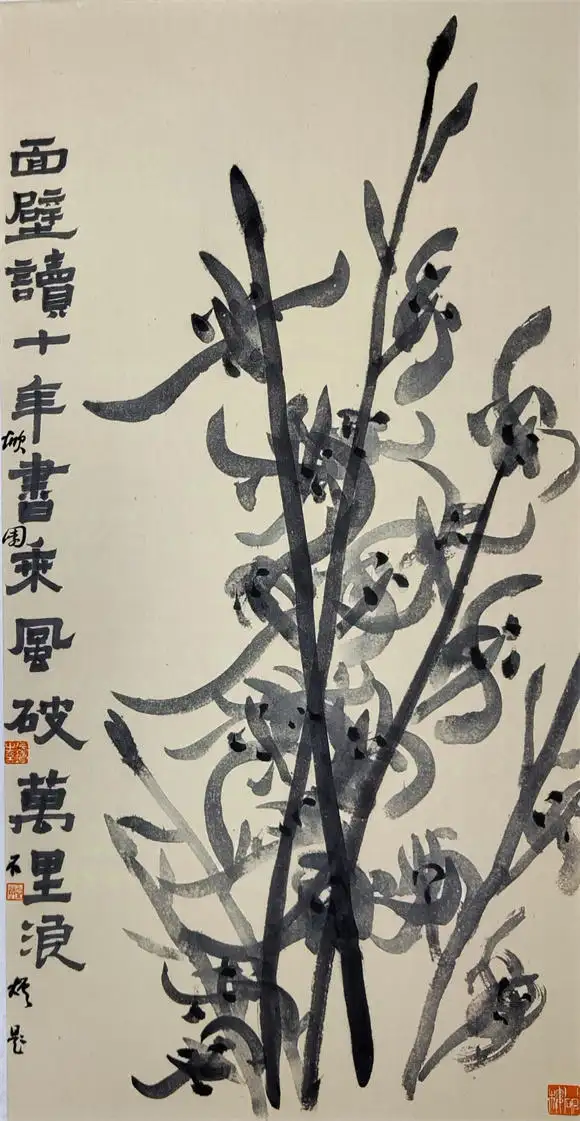 面壁讀十年書乘風破萬里浪